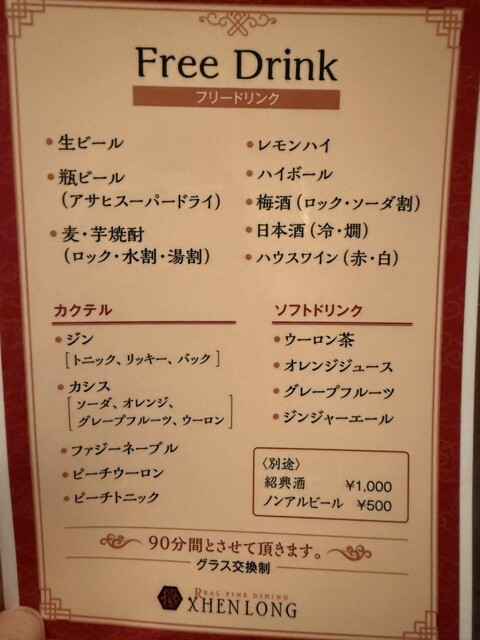 Free Drink
フリードリンク
•生ビール
•瓶ビール
(アサヒスーパードライ)
•麦・芋焼酎
(ロック・水割・湯割)
•レモンハイ
•ハイボール
•梅酒(ロック・ソーダ割)
•日本酒(冷・燗)
•ハウスワイン(赤・白)
カクテル
•ジン
[トニック、リッキー、バック]
•カシス
[ソーダ、オレンジ、
グレープフルーツ、ウーロン]
•ファジーネーブル
•ピーチウーロン
•ピーチトニック
ソフトドリンク
•ウーロン茶
•オレンジジュース
•グレープフルーツ
•ジンジャーエール
〈別途〉
紹興酒 ¥1,000
ノンアルビール ¥500
90分間とさせて頂きます。
グラス交換制
REAL FINE DINING
XHENLONG